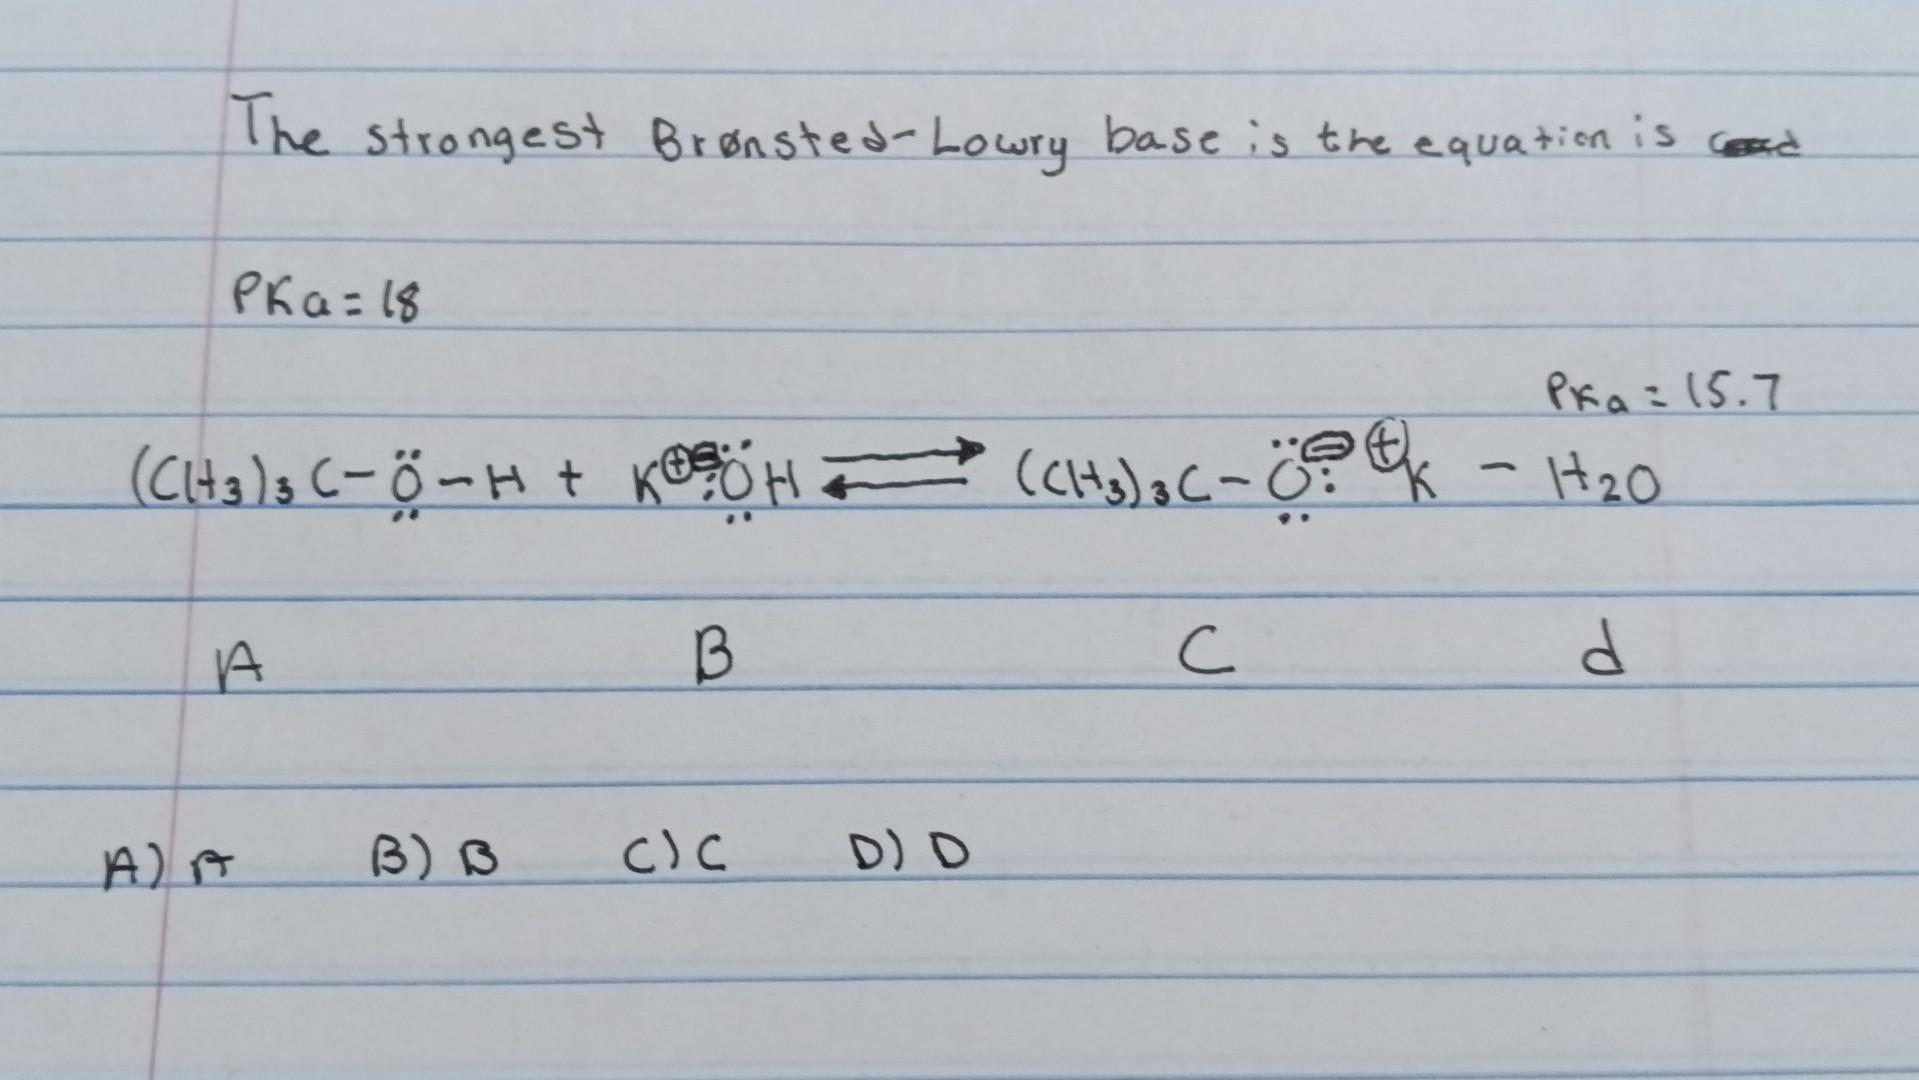 The strongest Brønsted-Lowry base is the equation is
PKa = 18
PKa = 15.7
(CH3)3C-Ö-H + K⊕⊖:ÖH ⇌ (CH3)3C-Ö:⊖ ⊕K - H2O
A B C d
A) A B) B C) C D) D